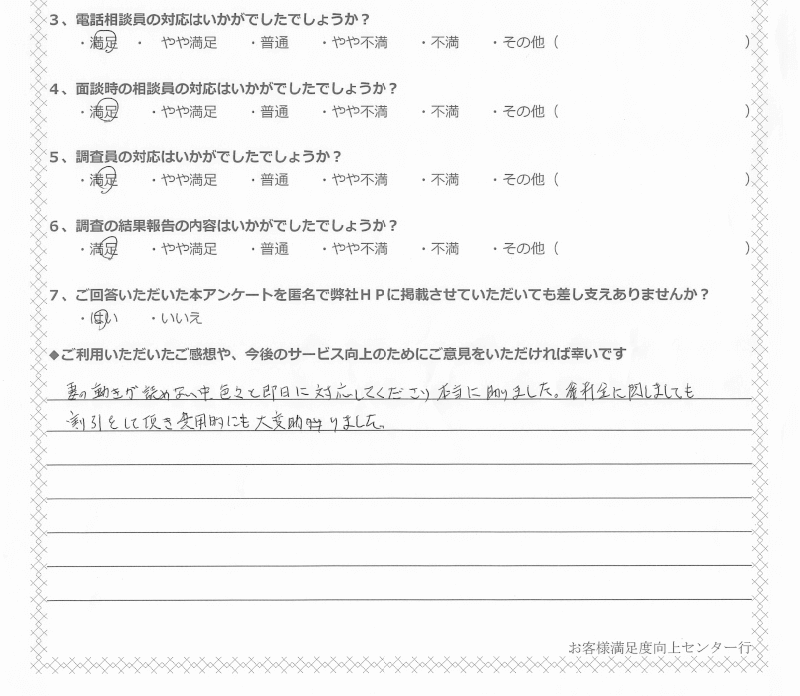 3、電話相談員の対応はいかがでしたでしょうか？
・満足 ・ やや満足 ・普通 ・やや不満 ・不満 ・その他（ ）
4、面談時の相談員の対応はいかがでしたでしょうか？
・満足 ・やや満足 ・普通 ・やや不満 ・不満 ・その他（ ）
5、調査員の対応はいかがでしたでしょうか？
・満足 ・やや満足 ・普通 ・やや不満 ・不満 ・その他（ ）
6、調査の結果報告の内容はいかがでしたでしょうか？
・満足 ・やや満足 ・普通 ・やや不満 ・不満 ・その他（ ）
7、ご回答いただいた本アンケートを匿名で弊社ＨＰに掲載させていただいても差し支えありませんか？
・はい ・いいえ
◆ご利用いただいたご感想や、今後のサービス向上のためにご意見をいただければ幸いです
妻の動きが読めない中、色々と即日に対応してくださり本当に助りました。料金に関しましても
割引をして頂き費用的にも大変助かりました。
お客様満足度向上センター行